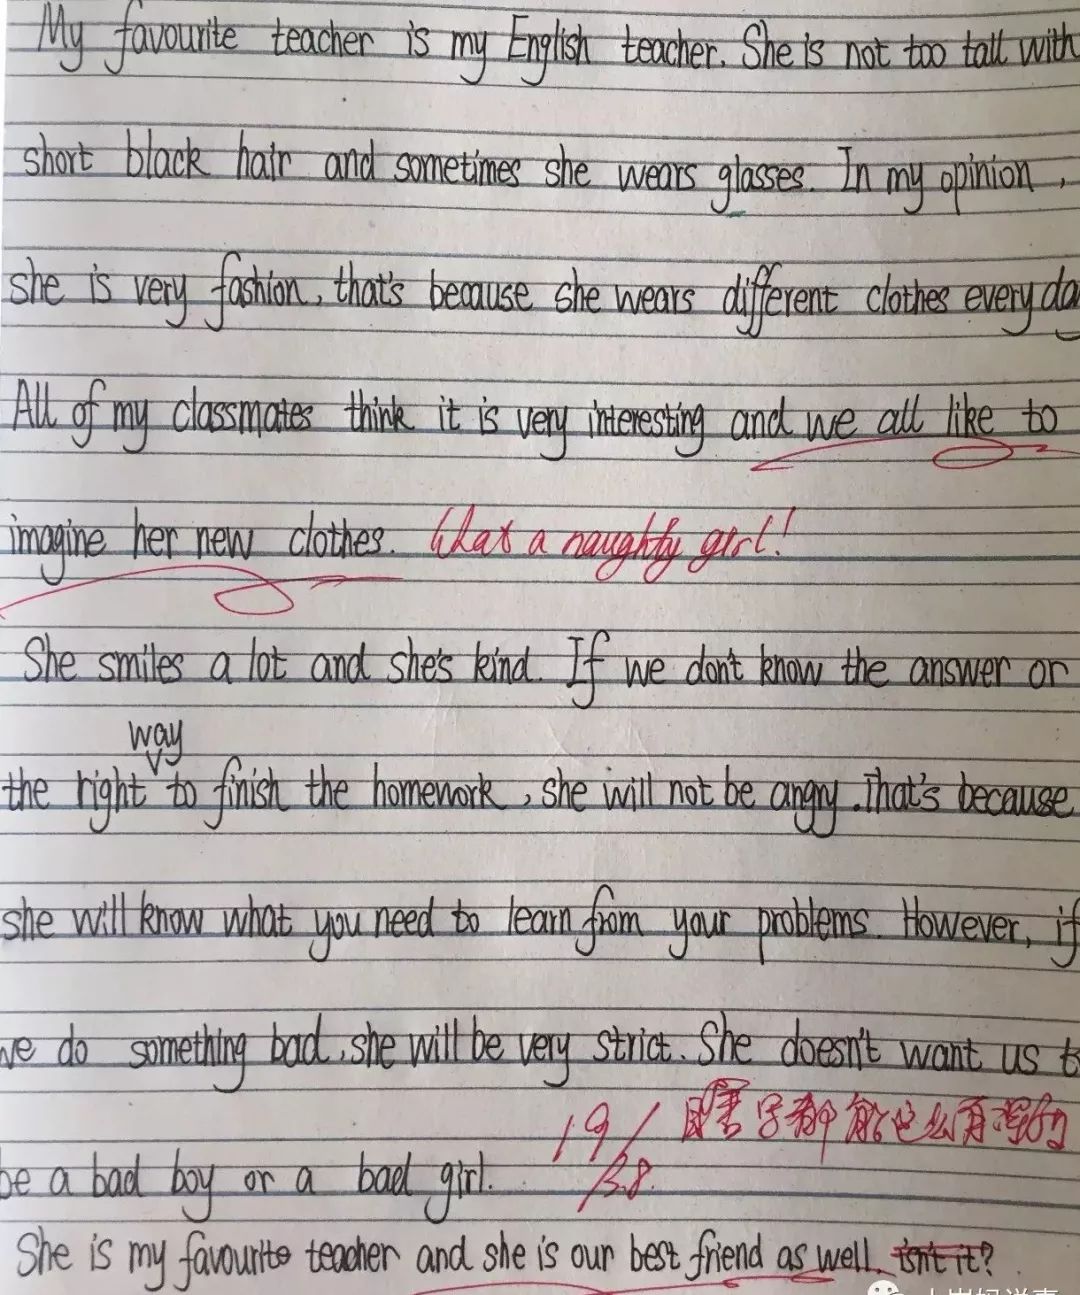 My favourite teacher is my English teacher. She is not too tall with
short black hair and sometimes she wears glasses. In my opinion,
she is very fashion, that's because she wears different clothes every da
All of my classmates think it is very interesting and we all like to
imagine her new clothes. What a naughty girl!
She smiles a lot and she's kind. If we don't know the answer or
way
the right to finish the homework, she will not be angry. That's because
she will know what you need to learn from your problems. However, if
we do something bad, she will be very strict. She doesn't want us t
be a bad boy or a bad girl.
19 / 瞎写都能这么有理的
3.8.
She is my favourite teacher and she is our best friend as well. isn't it?